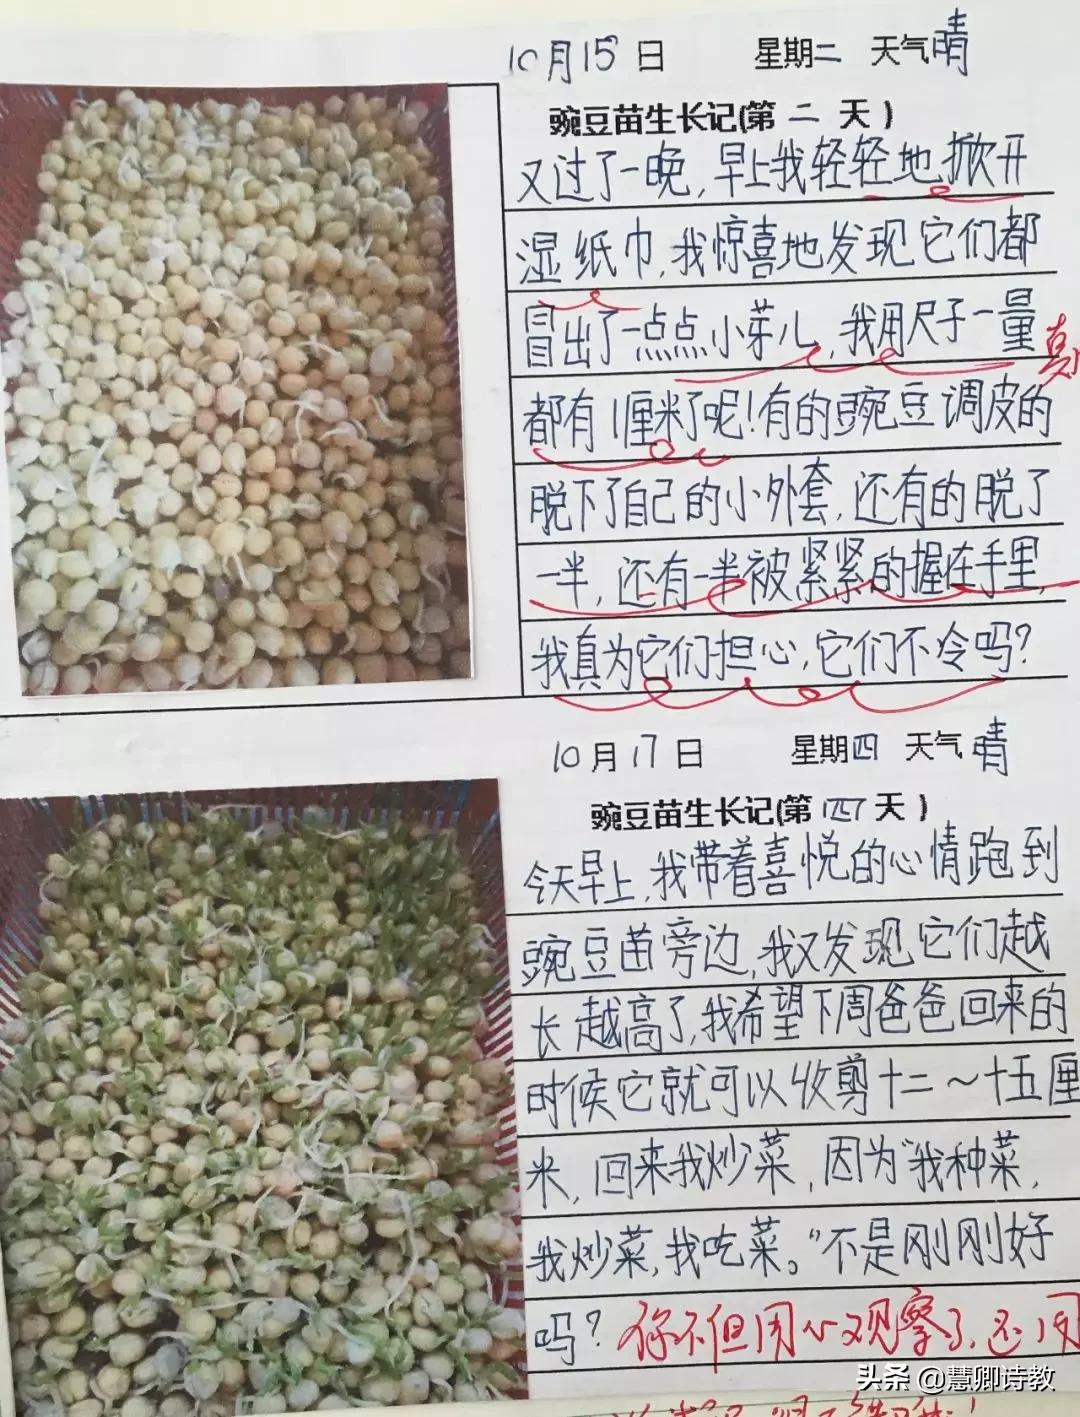 10月15日 星期二 天气晴
豌豆苗生长记(第 二 天)
又过了一晚,早上我轻轻地掀开
湿纸巾,我惊喜地发现它们都
冒出了一点点小芽儿,我用尺子一量
真
都有1厘米了呢!有的豌豆调皮的
脱下了自己的小外套,还有的脱了
一半,还有一半被紧紧的握在手里,
我真为它们担心,它们不冷吗?
10月17日 星期四 天气晴
豌豆苗生长记(第 四 天)
今天早上,我带着喜悦的心情跑到
豌豆苗旁边,我又发现它们越
长越高了,我希望下周爸爸回来的
时候它就可以收剪十二~十五厘
米,回来我炒菜,因为“我种菜,
我炒菜,我吃菜。”不是刚刚好
吗?你不但用心观察了,还用
头条@慧卿诗教